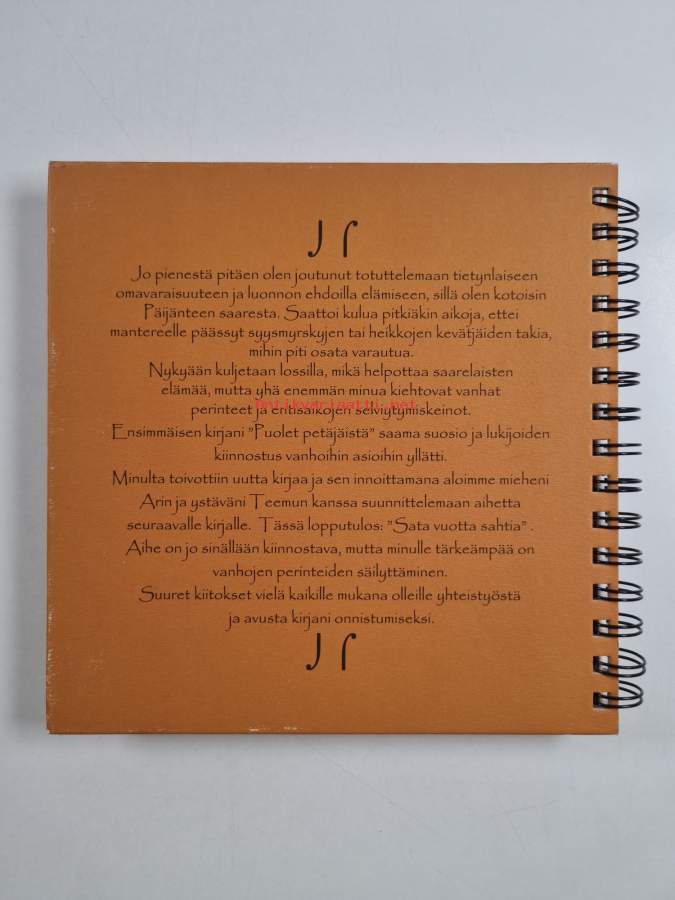 Jo pienestä pitäen olen joutunut totuttelemaan tietynlaiseen
omavaraisuuteen ja luonnon ehdoilla elämiseen, sillä olen kotoisin
Päijänteen saaresta. Saattoi kulua pitkiäkin aikoja, ettei
mantereelle päässyt syysmyrskyjen tai heikkojen kevätjäiden takia,
mihin piti osata varautua.
Nykyään kuljetaan lossilla, mikä helpottaa saarelaisten
elämää, mutta yhä enemmän minua kiehtovat vanhat
Antikvariaatti.net
perinteet ja entisaikojen selviytymiskeinot.
Ensimmäisen kirjani "Puolet petäjäistä" saama suosio ja lukijoiden
kiinnostus vanhoihin asioihin yllätti.
Minulta toivottiin uutta kirjaa ja sen innoittamana aloimme mieheni
Arin ja ystäväni Teemun kanssa suunnittelemaan aihetta
seuraavalle kirjalle. Tässä lopputulos: "Sata vuotta sahtia" .
Aihe on jo sinällään kiinnostava, mutta minulle tärkeämpää on
vanhojen perinteiden säilyttäminen.
Suuret kiitokset vielä kaikille mukana olleille yhteistyöstä
ja avusta kirjani onnistumiseksi.